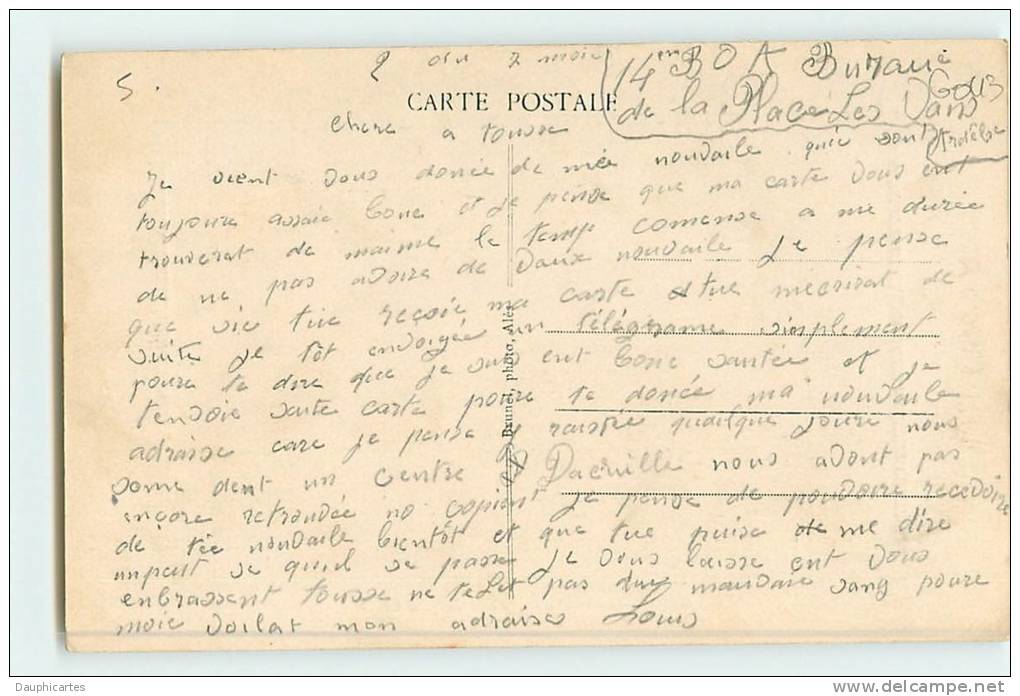 5.
2 du 7 mois
14em BOA Bureau
CARTE POSTALE
de la Place Les Vans
Ardèche
chere a tousse
Je vient vous donée de mée nouvaile quie sont
toujoure assaie bone et je pense que ma carte vous ent
trouverat de maime le temp comense a me durée
de ne pas avoire de vaux nouvaile je pense
que sie tue reçoie ma carte tue mecrirat de
suite je tôt envoiyée un télégrame simplement
poure te dire que je suis ent bone santée et je
tenvoie saite carte poure te donée ma nouvaile
adraise care je pense y raistée quelque joure nous
some dent un centre D'acuille nous avont pas
ençore retrouvée no copient je pense de pouvoire recevoire
de tée nouvaile bientôt et que tue puise me dire
unpeut se quil se passe je vous laisse ent vous
enbrassent tousse ne te fet pas du mauvaie sang poure
moie voilat mon adraise Louis
Brunel, photo, Alès
Dauphicartes
www.delcampe.net